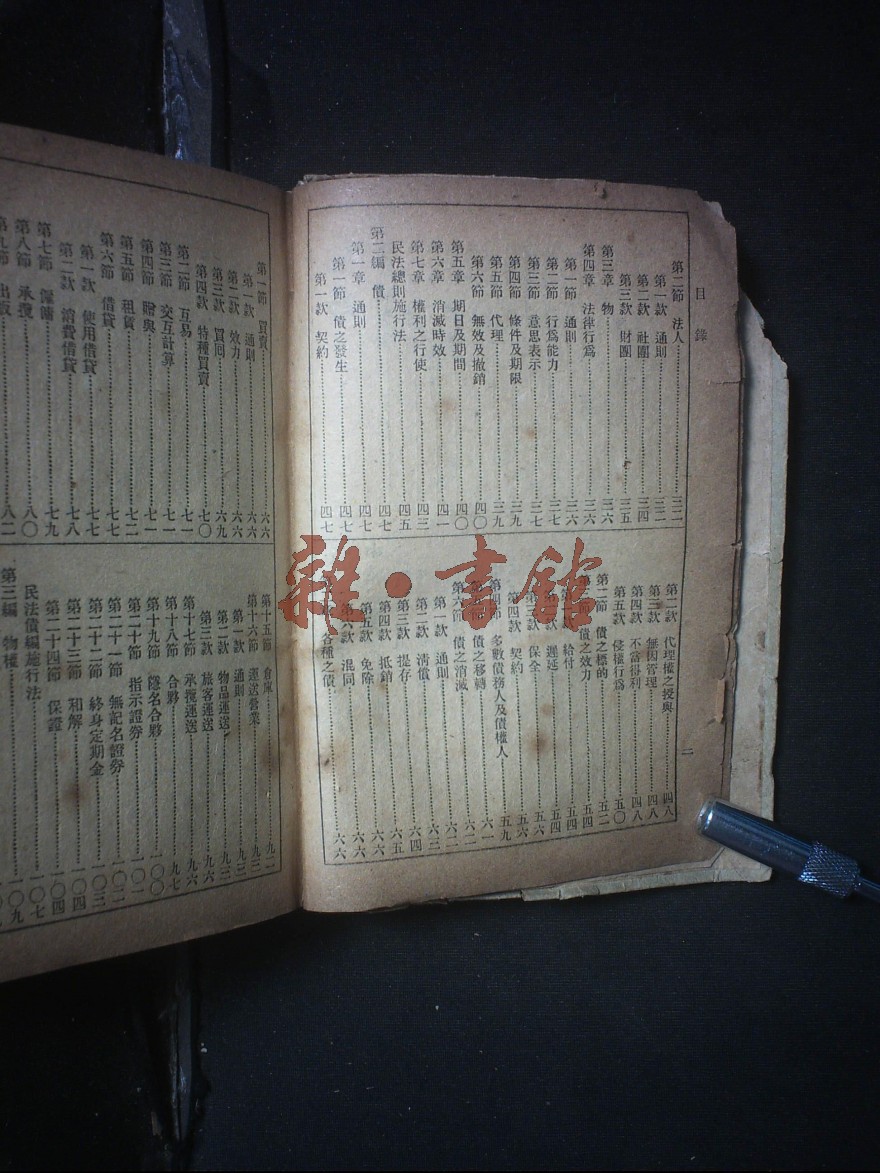 目錄
二
第二節 法人 三二
第一款 通則 三二
第二款 社團 三四
第三款 財團 三五
第三章 物 三六
第四章 法律行爲 三六
第一節 通則 三六
第二節 行爲能力 三七
第三節 意思表示 三七
第四節 條件及期限 三九
第五節 代理 三九
第六節 無效及撤銷 四〇
第五章 期日及期間 四〇
第六章 消滅時效 四一
第七章 權利之行使 四三
民法總則施行法 四五
第二編 債 四七
第一章 通則 四七
第一節 債之發生 四七
第一款 契約 四七
第二款 代理權之授與 四八
第三款 無因管理 四八
第四款 不當得利 四八
第五款 侵權行爲 五〇
第二節 債之標的 五二
債之效力 五四
給付 五四
遲延 五四
保全 五六
第四款 契約 五六
第四節 多數債務人及債權人 五九
債之移轉 六一
第六節 債之消滅 六二
第一款 通則 六二
第二款 清償 六三
第三款 提存 六四
第四款 抵銷 六五
第五款 免除 六六
第六款 混同 六六
各種之債 六六
第一節 買賣 六六
第一款 通則 六六
第二款 效力 六六
第三款 買回 六九
第四款 特種買賣 七〇
第二節 互易 七一
第三節 交互計算 七一
第四節 贈與 七一
第五節 租賃 七二
第六節 借貸 七七
第一款 使用借貸 七七
第二款 消費借貸 七八
第七節 僱傭 七九
第八節 承攬 八〇
第九節 出版 八二
第十五節 倉庫 九二
第十六節 運送營業 九三
第一款 通則 九三
第二款 物品運送 九三
第三款 旅客運送 九六
第十七節 承攬運送 九六
第十八節 合夥 九七
第十九節 隱名合夥 一〇〇
第二十節 指示證券 一〇一
第二十一節 無記名證券 一〇二
第二十二節 終身定期金 一〇三
第二十三節 和解 一〇四
第二十四節 保證 一〇四
民法債編施行法 一〇七
第三編 物權 一〇九
雜·書館